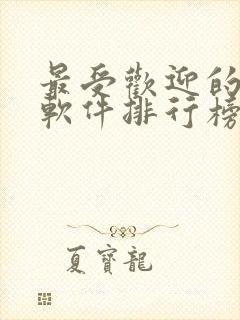 最受歡迎的
軟件排行榜
夏寶龍